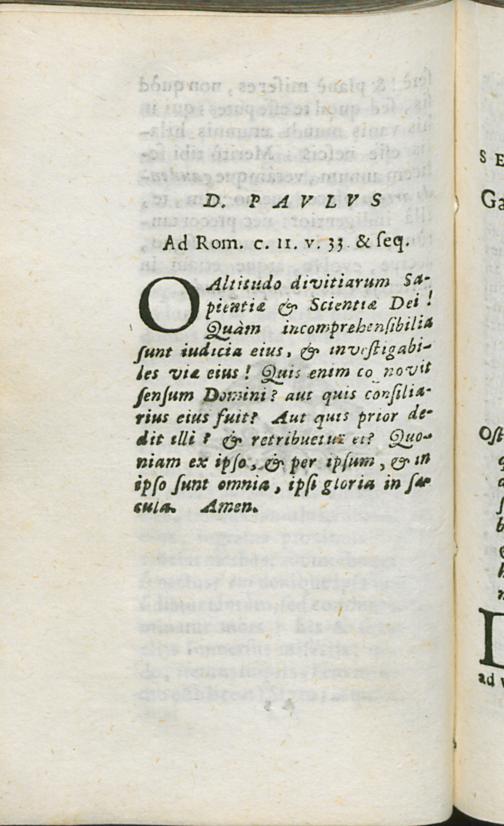 D. PAVLVS
Ad Rom. c. 11. v. 33. & ſeq.
O Altitudo divitiarum Sa-
pientiæ & Scientiæ Dei !
Quàm incomprehenſibilia
ſunt iudicia eius, & inveſtigabi-
les viæ eius ! Quis enim co novit
ſenſum Domini? aut quis conſilia-
rius eius fuit? Aut quis prior de-
dit illi ? & retribuetur ei? Quo-
niam ex ipſo, & per ipſum, & in
ipſo ſunt omnia, ipſi gloria in ſæ-
cula. Amen.
S E
Ga
Oſt
ad